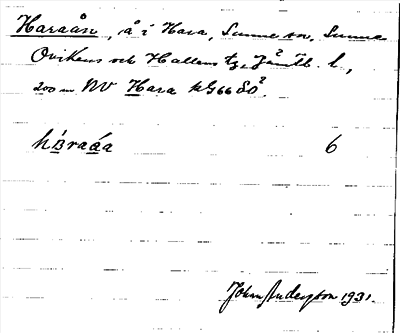 Haraån, å i Hara, Sunne sn, Sunne
Ovikens och Hallens tg, Jämtl. l.,
200 m NV Hara kG66 80².
hBraáa 6
John Anderzon 1931.